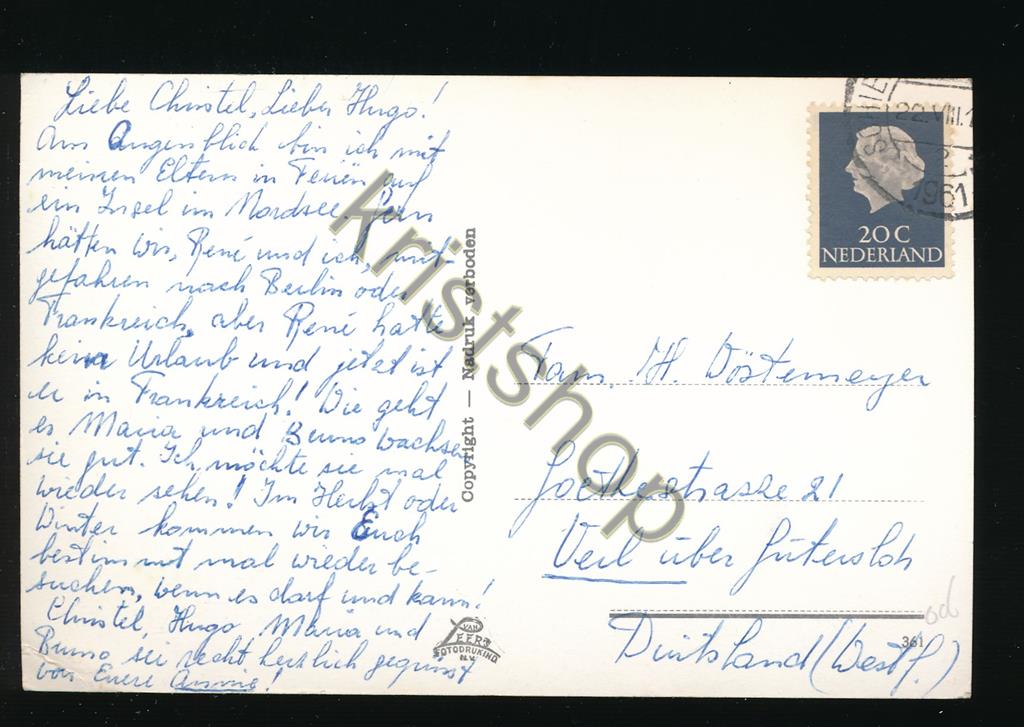 Liebe Christel, Lieber Hugo!
Am Augenblick bin ich mit
meinen Eltern in Ferien auf
ein Insel im Nordsee. Gern
hätten wir, René und ich, mit-
gefahren nach Berlin oder
Frankreich, aber René hatte
kein Urlaub und jetzt ist
er in Frankreich! Wie geht
es Maria und Bruno wachsen
sie gut. Ich möchte sie mal
wieder sehen! Im Herbst oder
Winter kommen wir Euch
bestimmt mal wieder be-
suchen, wenn es darf und kann!
Christel, Hugo, Maria und
Bruno sei recht herzlich gegrüsst
von Euere Annie!
Copyright — Nadruk verboden
VAN
LEER'S
FOTODRUKIND
N.V.
SCHIE
22.VIII.1
1961
20C
NEDERLAND
Fam. H. Döstemeyer
Goethestrasze 21
Verl über Gütersloh
361
od
Duitsland (Westf.)
kristshop